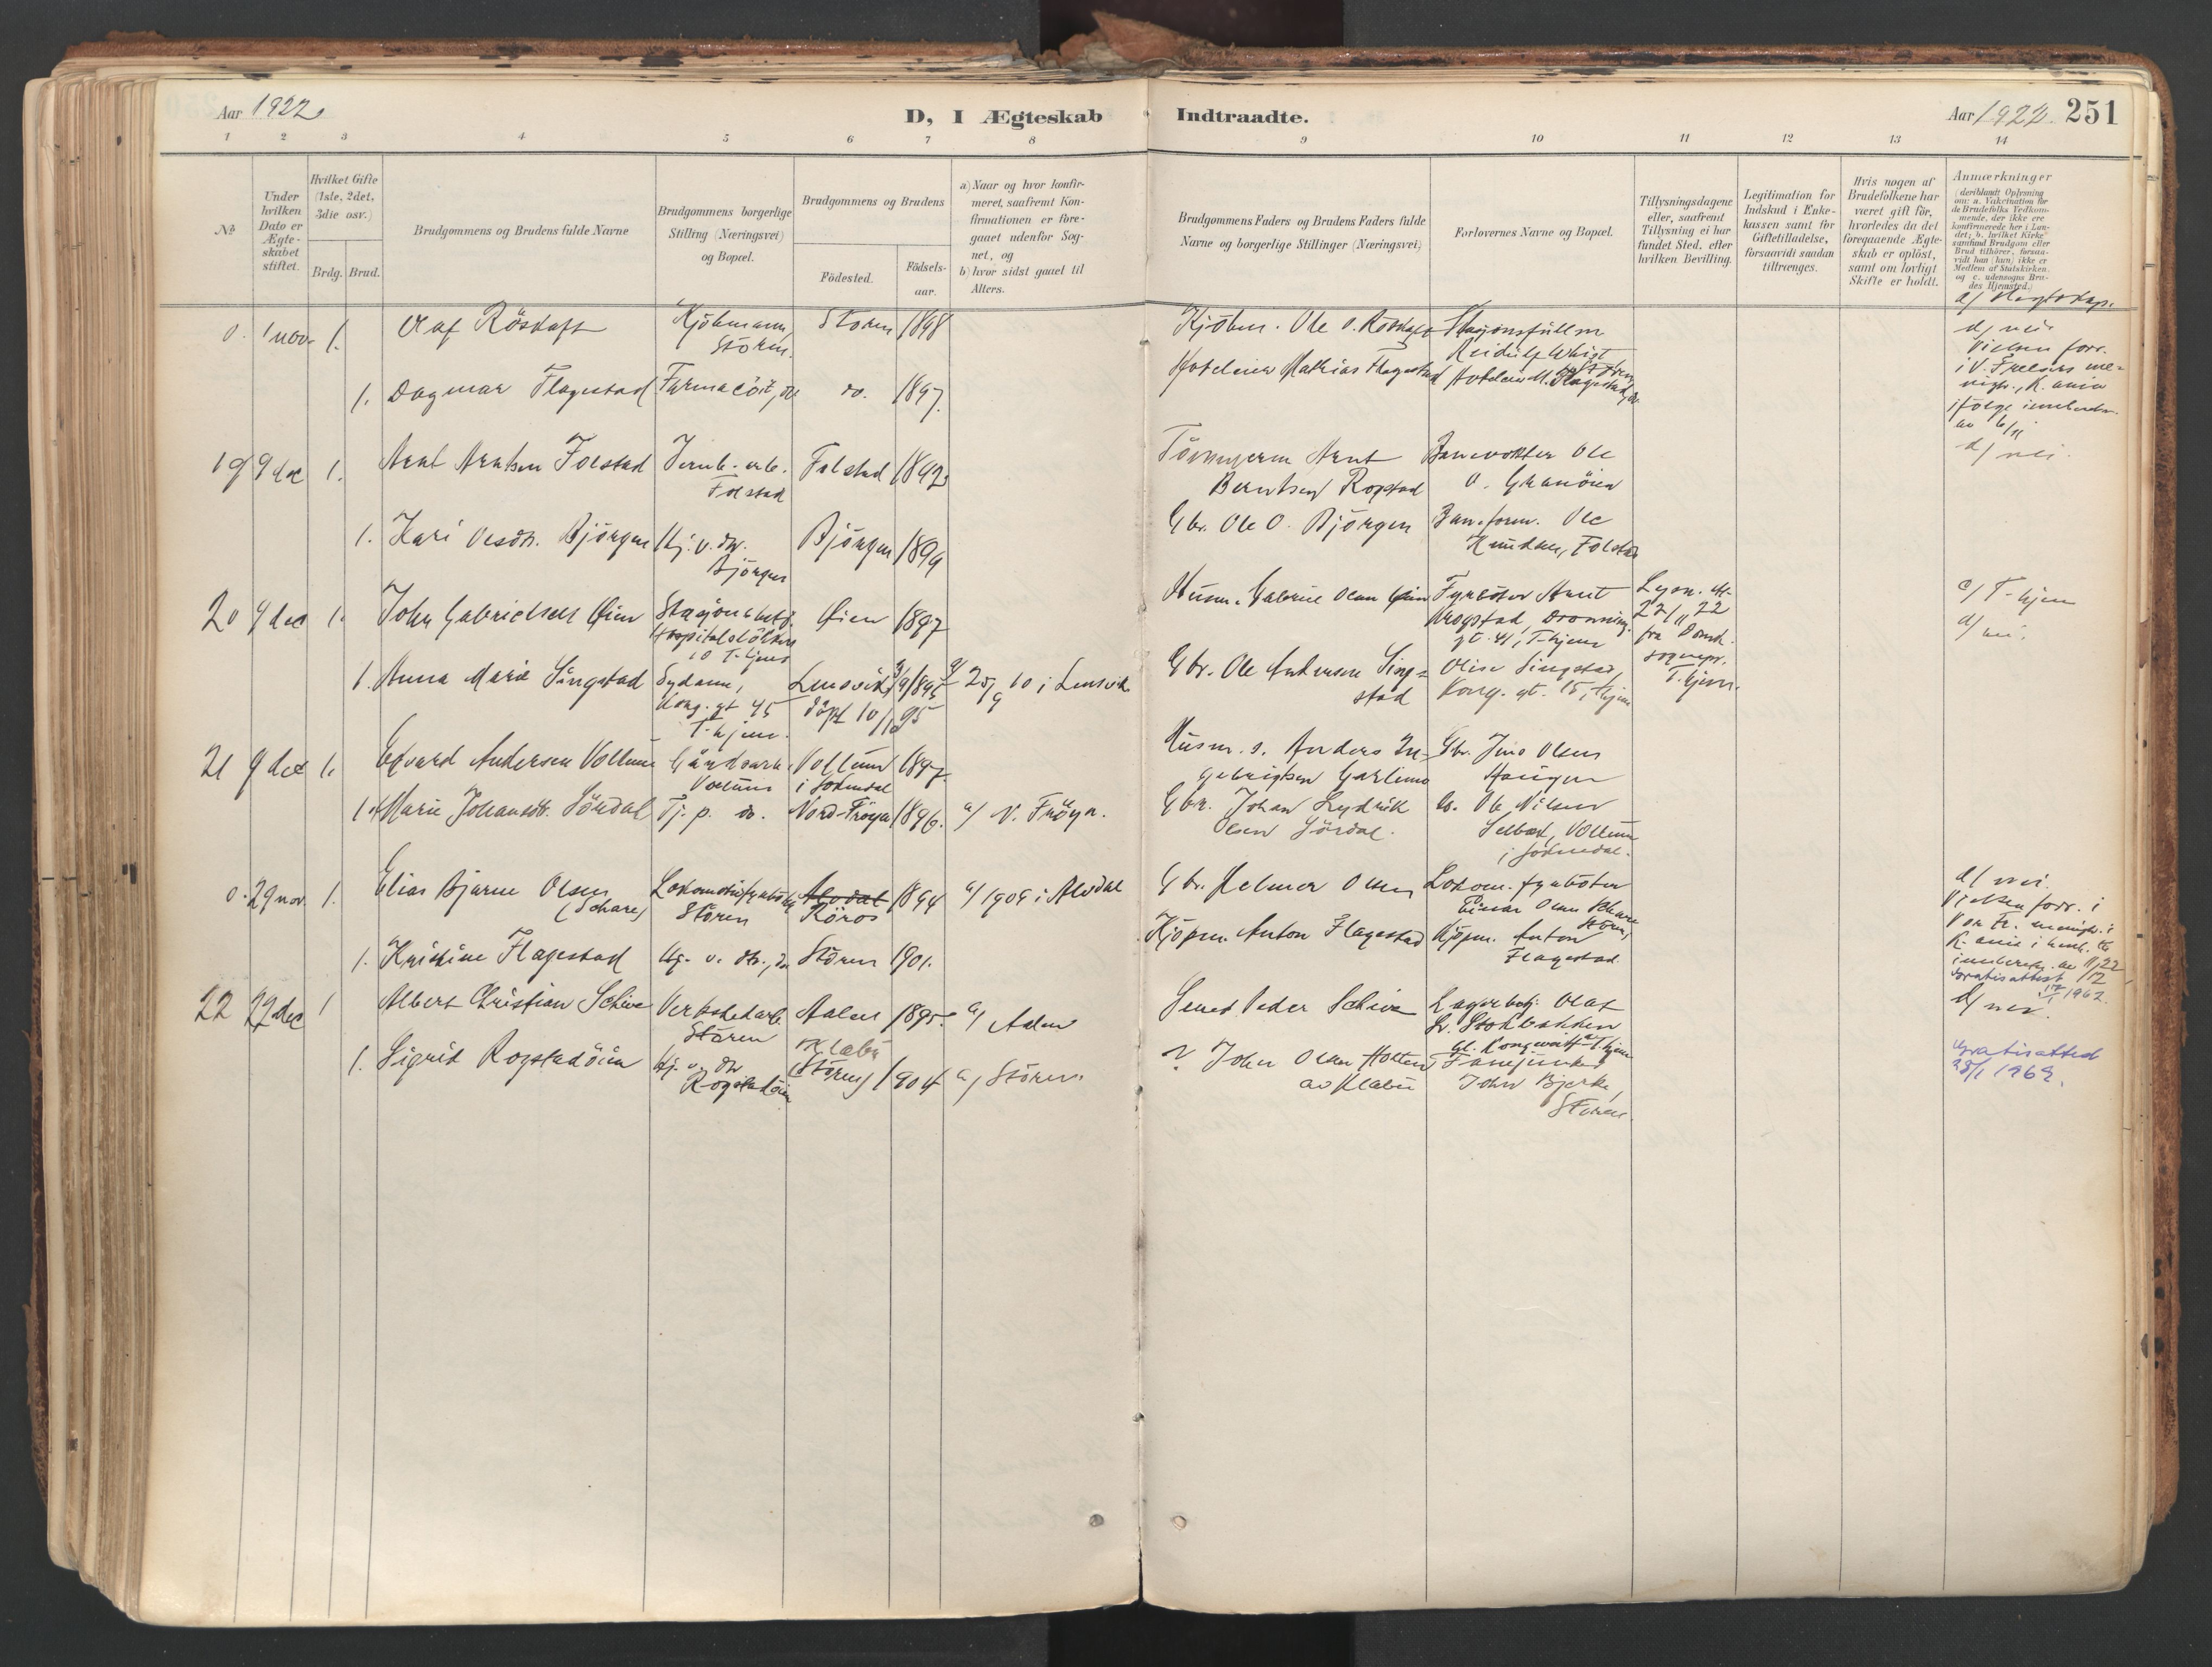 Aar 1922.
D, I Ægteskab Indtraadte.
Aar 1922. 251
1 2 3 4 5 6 7 8 9 10 11 12 13 14
№
Under hvilken Dato er Ægteskabet stiftet.
Hvilket Gifte (1ste, 2det, 3die osv.)
Brdg. Brud.
Brudgommens og Brudens fulde Navne
Brudgommens borgerlige Stilling (Næringsvei) og Bopæl.
Brudgommens og Brudens
Födested.
Födselsaar.
a) Naar og hvor konfirmeret, saafremt Konfirmationen er foregaaet udenfor Sognet, og
b) hvor sidst gaaet til Alters.
Brudgommens Faders og Brudens Faders fulde Navne og borgerlige Stillinger (Næringsvei)
Forlovernes Navne og Bopæl.
Tillysningsdagene eller, saafremt Tillysning ei har fundet Sted, efter hvilken Bevilling.
Legitimation for Indskud i Enkekassen samt for Giftetilladelse, forsaavidt saadan tiltrænges.
Hvis nogen af Brudefolkene har været gift för, hvorledes da det foregaaende Ægteskab er oplöst, samt om lovligt Skifte er holdt.
Anmærkninger
(deriblandt Oplysning om: a. Vakcination för de Brudefolks Vedkommende, der ikke ere konfirmerede her i Landet; b. hvilket Kirkesamfund Brudgom eller Brud tilhörer, forsaavidt han (hun) ikke er Medlem af Statskirken, og c. udensogns Brudes Hjemsted.)
0. 1 nov. 1. Olaf Röskaft Kjöbmann, Stören. Stören 1898 Kjöbm. Ole O. Röskaft
d/ nei.
1. Dagmar Flagestad Farmaceöt, do do. 1897. Hoteleier Mathias Flagestad Hoteleier M. Flagestad, do.
Vielsen forr.
i V. Frelsers menigh., K. ania
ifölge innberetn.
av 6/11
19 9 dec 1. Arnt Arntsen Folstad Jernb. arb. Folstad Folstad 1892 Tömmerm. Arnt Berntsen Rogstad Banevokter Ole O. Granöien
d/ nei.
1. Kari Olesdtr. Björgen Hj. v. do. Björgen Björgen 1899 Gbr. Ole O. Björgen Baneform. Ole Knudsen, Folstad
20 9 dec 1. John Gabrielsen Öien Stasjonsbetj. Hospitalslökken 10 T-hjem Öien 1897 Husm. Gabriel Olsen Öien Fyrböter Arnt Krogstad, Dronning. gt. 41, T-hjem
Lysn. att. 27/11 22 fra Domk. sognepr. T-hjem.
c/ T-hjem
d/ nei.
1. Anna Marie Singstad Sydame, Kong. gt 45 T-hjem. Lensvik döpt 10/1895 a/ 25/9 10 i Lensvik Gbr. Ole Andersen Singstad Olise Singstad, Kong. gt. 15, T-hjem
21 9 dec 1. Edvard Andersen Vollum Gårdsarb. Vollum Vollum i Soknedal 1897. Husm. s. Anders Ingebrigtsen Garlimo Gbr. Jens Olsen Haugen
1. Marie Johansdtr. Sördal Tj. p. do. Nord-Fröya 1896. a/ N. Fröya. Gbr. Johan Lydrik Olsen Sördal. do. Ole Nilsen Selbæk, Vollum i Soknedal.
0. 29 nov. 1. Elias Bjarne Olsen (Schare) Lokomotivfyrböter Stören Alvdal Röros 1894 a/ 1909 i Alvdal Gbr. Helmer Olsen Lokom. fyrböter Einar Olsen Schare Stören,
d/ nei.
Vielsen forr. i
Vor Fr. menigh. i
1. Kristine Flagestad Hj. v. do., do Stören 1901. Kjöpm. Anton Flagestad Kjöpm. Anton Flagestad
22 27 dec 1 Albert Christian Schive Verkstedarb. Stören Aalen 1895. a/ Aalen Peder Schive Lagerbetj. Olaf Stokbakken
Gratisattest 17/1 1962.
d/ nei.
1. Sigrid Rogstadöien Hj. v. do Rogstadöien Klæbu (Stören) 1904 a/ Stören. John Olsen Holten av Klæbu Fanejunker John Bjerke, Stören.
Gratisattest
28/1 1969.